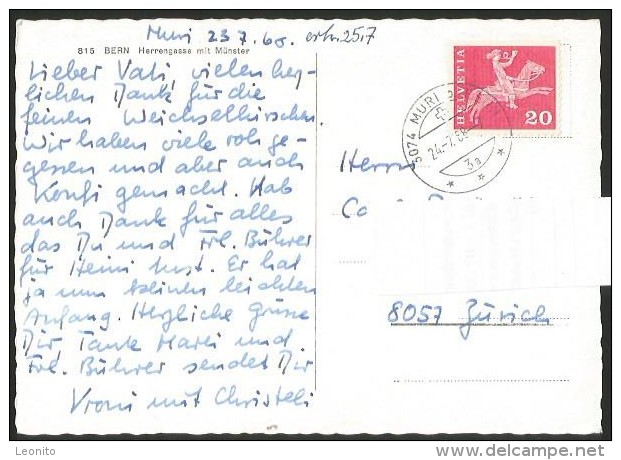 Muri 23 7.68. erh. 25.7
815 BERN Herrengasse mit Münster
Lieber Vati, vielen herz-
lichen Dank für die
feinen Weichselkirschen.
Wir haben viele roh ge-
gessen und aber auch
Konfi gemacht. Hab
auch Dank für alles
das Du und Frl. Bührer
für Heini tust. Er hat
ja nun keinen leichten
Anfang. Herzliche Grüsse
Dir Tante Marei und
Frl. Bührer sendet Dir
Vroni mit Christeli
HELVETIA
20
3074 MURI
24.-7.68
3a
Herrn
8057 Zürich
Leonito
www.delcampe.net